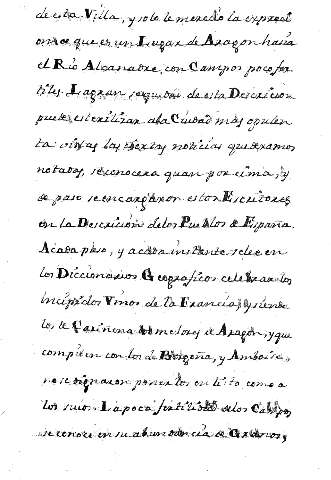 de esta Villa, y solo le merecio la expresi
on se que es un Lugar de Aragon hacia
el Rio Alcanadre, con Campos poco fer
tiles. La gran de esta Descricion
puede esterilizar a la Ciudad mas opulen
ta las noticias que tenemos
notadas, se conocera quan por cima, y
de paso se encargaron estos Escritores
en la Descricion de los Pueblos de España
A cada paso, y a cada instante se lee en
los Diccionarios Geograficos celebrar los
incipidos Vinos de la Francia, y siendo
los de Cariñena los mejores de Aragon, y que
compiten con los de Borgoña, y
no se dignaron ponerlos en listo como a
los suios. La poca fertilidad de los Campos
se conoce en su abundancia de Granos,